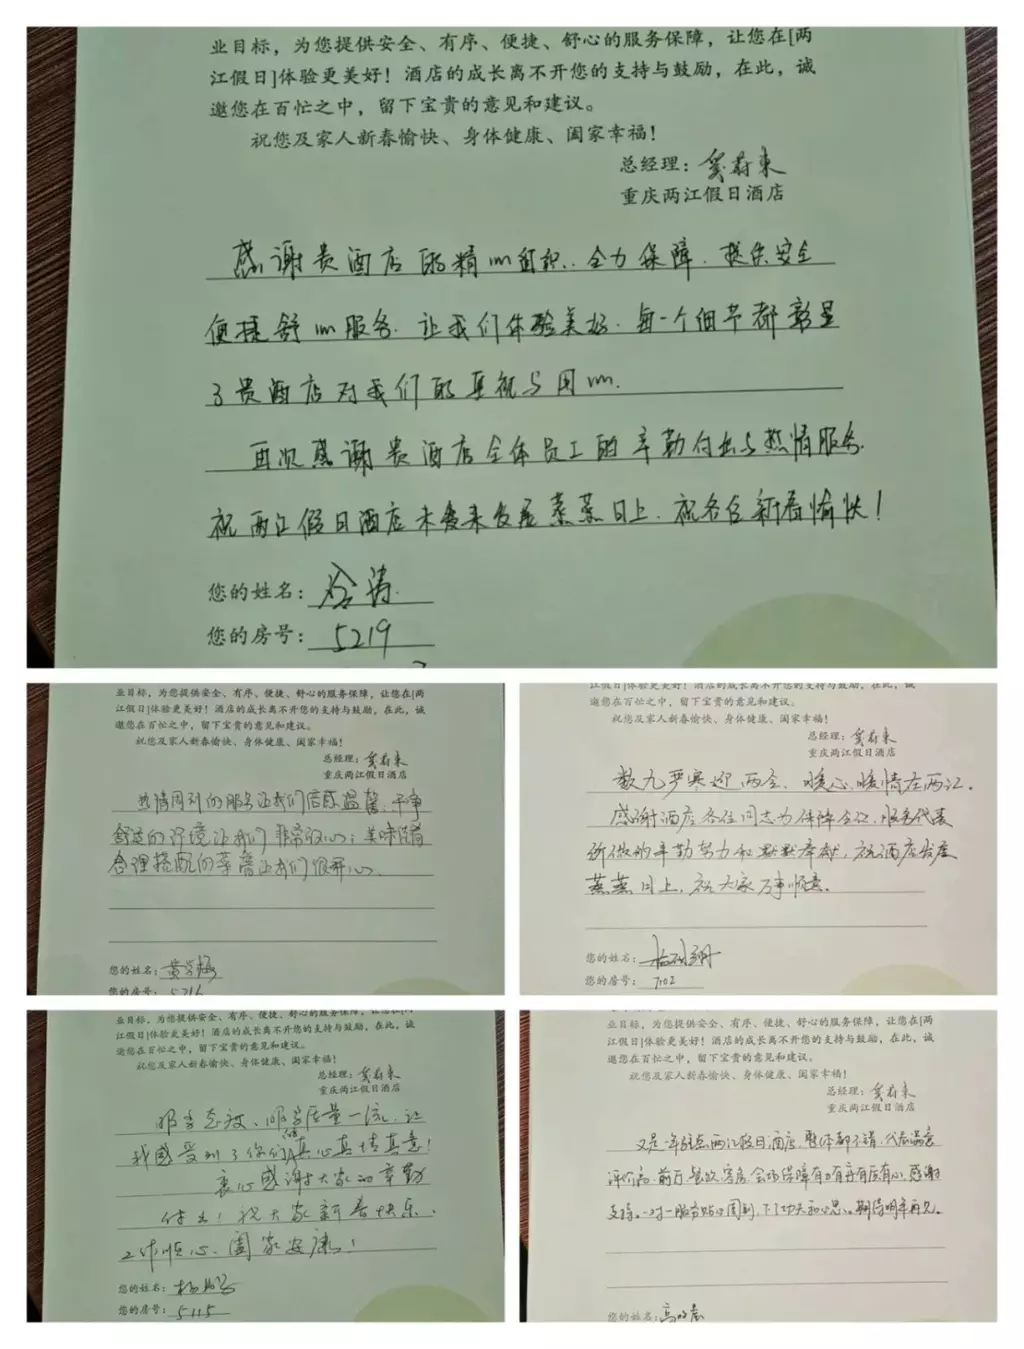 业目标，为您提供安全、有序、便捷、舒心的服务保障，让您在[两
江假日]体验更美好！酒店的成长离不开您的支持与鼓励，在此，诚
邀您在百忙之中，留下宝贵的意见和建议。
祝您及家人新春愉快、身体健康、阖家幸福！
总经理：
重庆两江假日酒店
感谢贵酒店的精心组织、全力保障、提供安全
便捷舒心服务，让我们体验美好，每一个细节都彰显
了贵酒店对我们的重视与用心。
再次感谢贵酒店全体员工的辛勤付出与热情服务，
祝两江假日酒店未来发展蒸蒸日上，祝各位新春愉快！
您的姓名：
您的房号：5219
业目标，为您提供安全、有序、便捷、舒心的服务保障，让您在[两
江假日]体验更美好！酒店的成长离不开您的支持与鼓励，在此，诚
邀您在百忙之中，留下宝贵的意见和建议。
祝您及家人新春愉快、身体健康、阖家幸福！
总经理：
重庆两江假日酒店
热情周到的服务让我们倍感温馨；干净
舒适的环境让我们非常放心；美味
合理搭配的菜谱让我们很开心。
您的姓名：
您的房号：5216
江假日]体验更美好！酒店的成长离不开您的支持与鼓励，在此，诚
邀您在百忙之中，留下宝贵的意见和建议。
祝您及家人新春愉快、身体健康、阖家幸福！
总经理：
重庆两江假日酒店
数九严寒迎两会，暖心暖情在两江。
感谢酒店各位同志为保障会议、服务代表
所做的辛勤努力和默默奉献，祝酒店发展
蒸蒸日上，祝大家万事顺意。
您的姓名：
您的房号：7102
业目标，为您提供安全、有序、便捷、舒心的服务保障，让您在[两
江假日]体验更美好！酒店的成长离不开您的支持与鼓励，在此，诚
邀您在百忙之中，留下宝贵的意见和建议。
祝您及家人新春愉快、身体健康、阖家幸福！
总经理：
重庆两江假日酒店
服务态度、服务质量一流，让
我感受到了你们的真心真情真意！
衷心感谢大家的辛勤
付出！祝大家新春快乐、
工作顺心、阖家安康！
您的姓名：
您的房号：5115
业目标，为您提供安全、有序、便捷、舒心的服务保障，让您在[两
江假日]体验更美好！酒店的成长离不开您的支持与鼓励，在此，诚
邀您在百忙之中，留下宝贵的意见和建议。
祝您及家人新春愉快、身体健康、阖家幸福！
总经理：
重庆两江假日酒店
又是一年驻在两江假日酒店，整体都不错，代表满意
评价高，前厅、餐饮、客房、会场保障有力有序有度有心，感谢
支持。一对一服务贴心周到，下了功夫和心思。期待明年再见。
您的姓名：